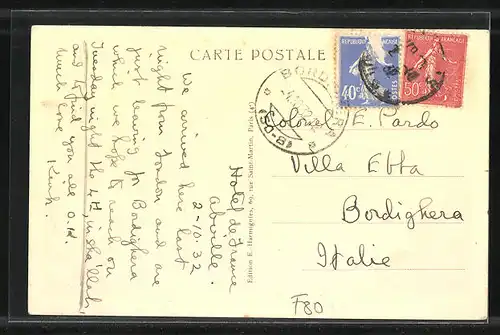 CARTE POSTALE
REPUBLIQUE FRANÇAISE
40c
POSTES
REPUBLIQUE FRANÇAISE
50c
BORD
(18-19)
Hotel de France
Abbeville.
2-10.32
We arrived here last
night from London and are
just leaving for Bordighera
which we hope to reach on
Tuesday night the 4th,
and to find you all O.K.
Much love
Edition E. Hautegoles, 69, rue Saint-Martin, Paris (4e)
Colonel E. Pardo
Villa Ebba
Bordighera
Italie
F80